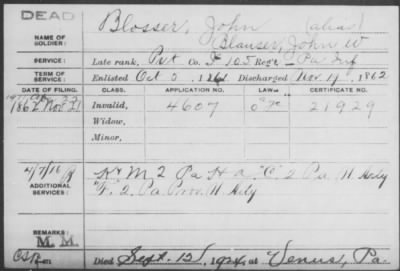 DEAD
Blosser, John (alias)
NAME OF SOLDIER:
Blauser, John W
SERVICE:
Late rank, Pvt Co. F 105 Regt. Pa Inf
TERM OF SERVICE:
Enlisted Oct 5, 1861 Discharged Nov. 19, 1862
DATE OF FILING. CLASS. APPLICATION NO. LAW. CERTIFICATE NO.
1862 Nov 21 Invalid, 4607 21929
Widow,
Minor,
4/7/16
ADDITIONAL SERVICES:
K, M 2 Pa H a, "C," 2 Pa. H Arty
"F," 2. Pa Prov. H Arty
REMARKS:
M. M.
Died Sept. 12, 1924, at Venus, Pa.